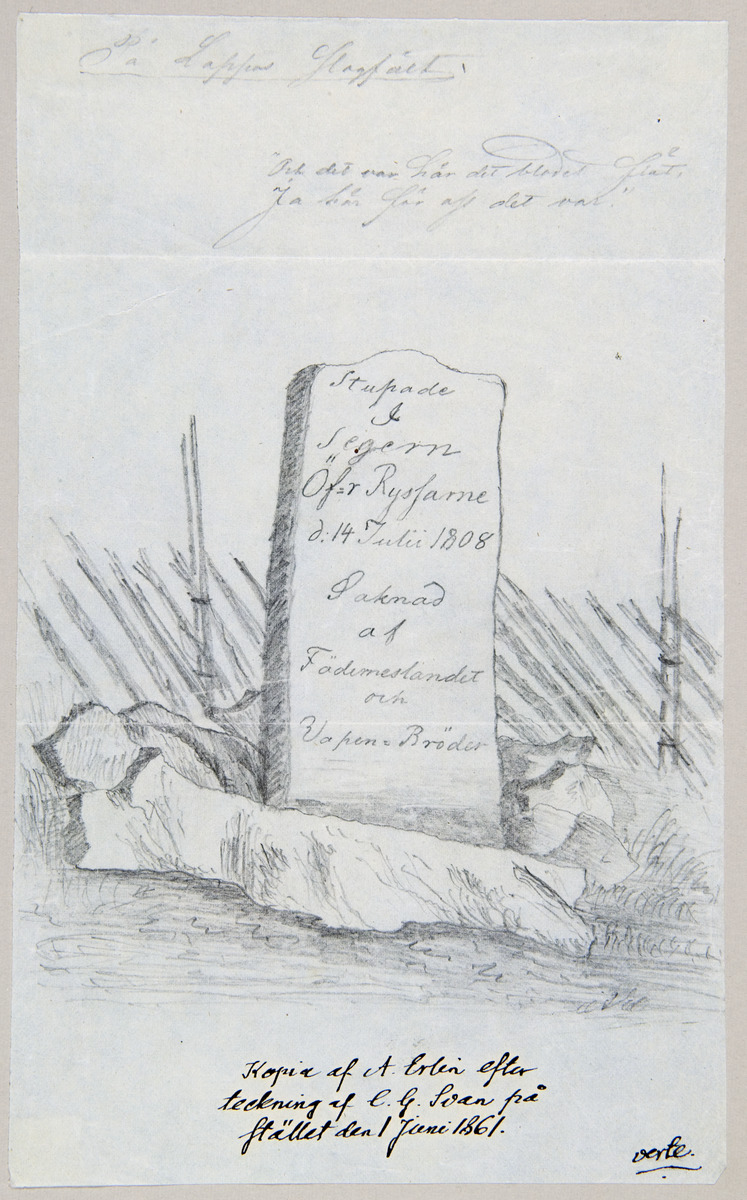 På Lappos slagfält.
"Och det var här det blodet flöt,
Ja här för oss det var."
Stupade
I
Segern
Öf=r Ryssarne
d: 14 Julii 1808
Saknad
af
Fäderneslandet
och
Vapen=Bröder
Kopia af A. Erlin efter
teckning af C. G. Svan på
stället den 1 Juni 1861.
verte.